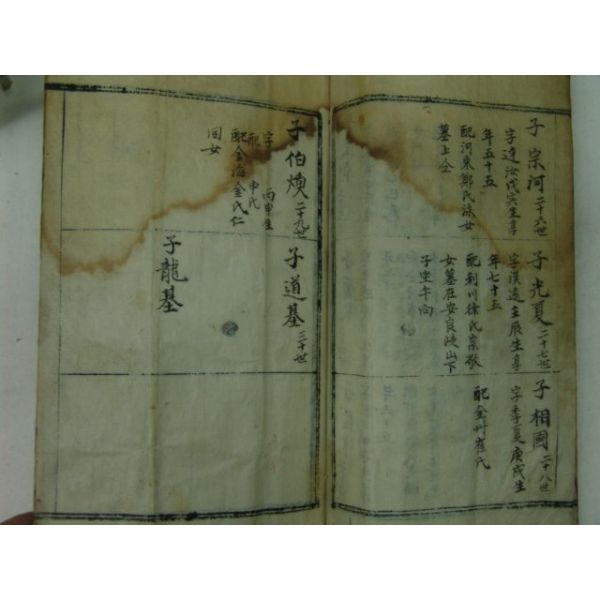 子 宗河 二十六世
字達汝戊寅生享
年五十五
配河東鄭氏泳女
墓上仝
子 光夏 二十七世
字漢遠壬辰生享
年七十五
配利川徐氏宗敬
女墓在安良峴山下
子坐午向
子 相國 二十八世
字季夏庚戌生
配全州崔氏
子 伯煥 二十九世
字 丙申生
配 申氏
配金海金氏仁
同女
子 道基 三十世
子 龍基